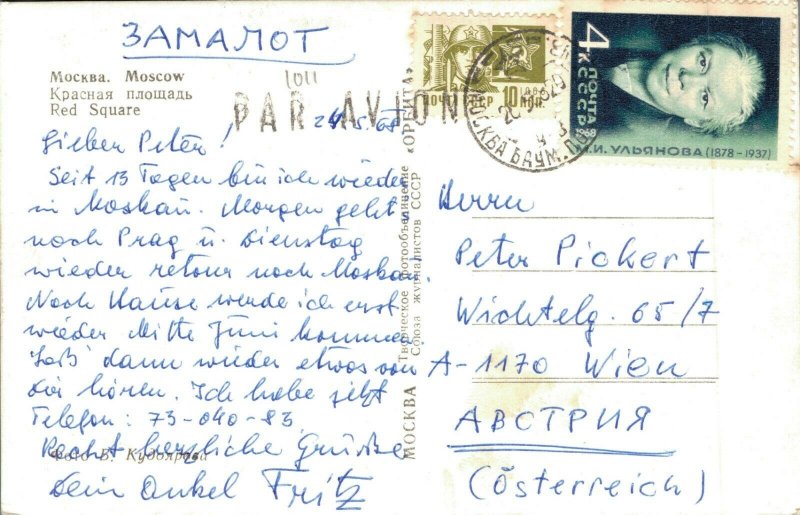 ЗАМАЛОТ
Москва. Moscow
Красная площадь
Red Square
1011
PAR AVION
ПОЧТА СССР 10 КОП. 1966
4 К
ПОЧТА
СССР
1968
М.И. УЛЬЯНОВА (1878-1937)
МОСКВА
Lieber Peter!
Seit 13 Tagen bin ich wieder
in Moskau. Morgen geht's
nach Prag u. Dienstag
wieder retour nach Moskau.
Nach Hause werde ich erst
wieder Mitte Juni kommen.
Laß dann wieder etwas von
Dir hören. Ich habe jetzt
Telefon: 73-040-83
Recht herzliche Grüße
Dein Onkel Fritz
Фото В. Кудоярова
МОСКВА Творческое фотообъединение «ОРБИТА»
Союза журналистов СССР
Herrn
Peter Pickert
Wichtelg. 65/7
A-1170 Wien
АВСТРИЯ
(Österreich)